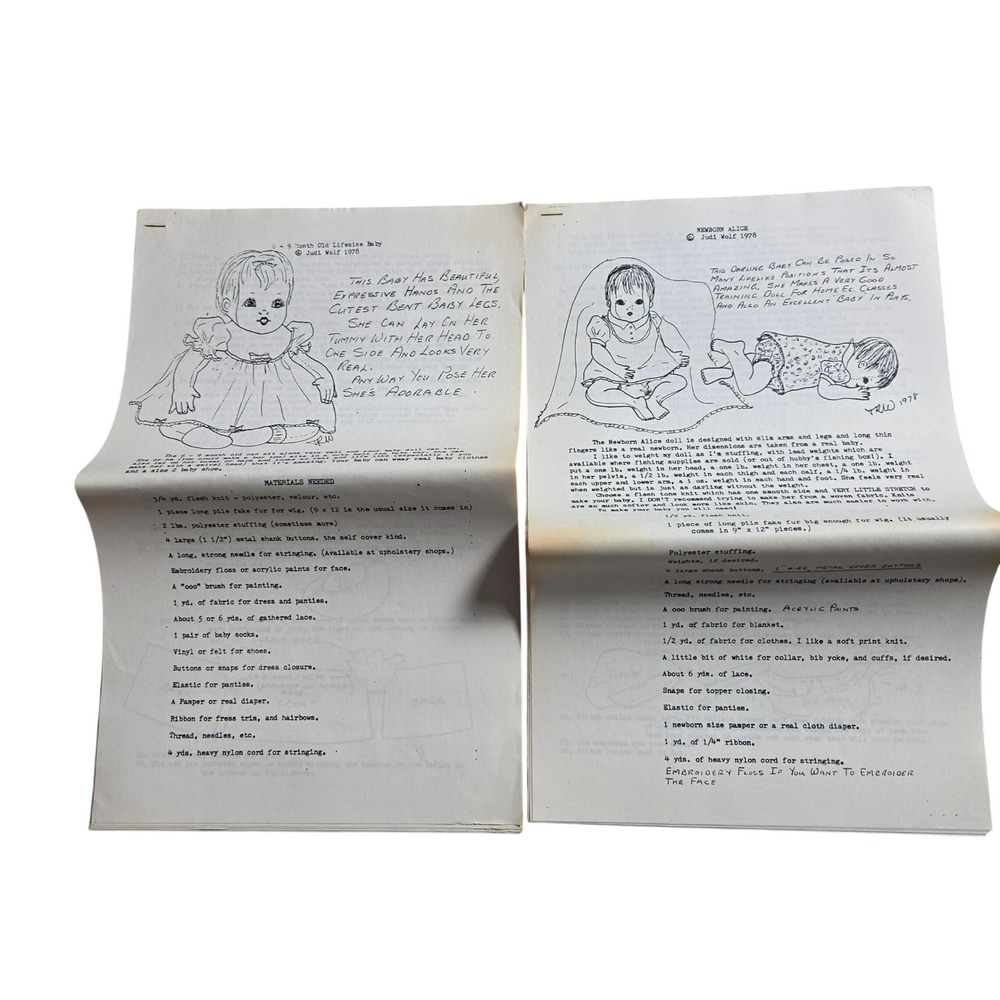 6 - 9 Month Old Lifesize Baby
© Judi Wolf 1978
THIS BABY HAS BEAUTIFUL
EXPRESSIVE HANDS AND THE
CUTEST BENT BABY LEGS.
SHE CAN LAY ON HER
TUMMY WITH HER HEAD TO
ONE SIDE AND LOOKS VERY
REAL.
ANY WAY YOU POSE HER
SHE'S ADORABLE.
JRW
The 6 - 9 month old can sit alone
and a size 2 baby shoe.
MATERIALS NEEDED
3/4 yd. flesh knit - polyester, velour, etc.
1 piece long pile fake fur for wig. (9 x 12 is the usual size it comes in)
2 lbs. polyester stuffing (sometimes more)
4 large (1 1/2") metal shank buttons, the self cover kind.
A long, strong needle for stringing. (Available at upholstery shops.)
Embroidery floss or acrylic paints for face.
A "ooo" brush for painting.
1 yd. of fabric for dress and panties.
About 5 or 6 yds. of gathered lace.
1 pair of baby socks.
Vinyl or felt for shoes.
Buttons or snaps for dress closure.
Elastic for panties.
A Pamper or real diaper.
Ribbon for fress trim, and hairbows.
Thread, needles, etc.
4 yds. heavy nylon cord for stringing.
BACK
NEWBORN ALICE
© Judi Wolf 1978
THIS DARLING BABY CAN BE POSED IN SO
MANY LIFELIKE POSITIONS THAT ITS ALMOST
AMAZING. SHE MAKES A VERY GOOD
TRAINING DOLL FOR HOME EC CLASSES
AND ALSO AN EXCELLENT BABY IN PLAYS.
JRW 1978
The Newborn Alice doll is designed with slim arms and legs and long thin
fingers like a real newborn. Her dimensions are taken from a real baby.
I like to weight my doll as I'm stuffing, with lead weights which are
available where fishing supplies are sold (or out of hubby's fishing box!). I
put a one lb. weight in her head, a one lb. weight in her chest, a one lb. weight
in her pelvis, a 1/2 lb. weight in each thigh and each calf, a 1/4 lb. weight in
each upper and lower arm, a 1 oz. weight in each hand and foot. She feels very real
when weighted but is just as darling without the weight.
Choose a flesh tone knit which has one smooth side and VERY LITTLE STRETCH to
make your baby. I DON'T recommend trying to make her from a woven fabric. Knits
are so much softer and look more like skin. They also are much easier to work with.
To make your baby you will need:
1/2 yd. flesh knit.
1 piece of long pile fake fur big enough for wig. (it usually
comes in 9" x 12" pieces.)
Polyester stuffing.
Weights, if desired.
4 large shank buttons. 1" SIZE, METAL COVER BUTTONS
A long strong needle for stringing (available at upholstery shops).
Thread, needles, etc.
A ooo brush for painting. ACRYLIC PAINTS
1 yd. of fabric for blanket.
1/2 yd. of fabric for clothes. I like a soft print knit.
A little bit of white for collar, bib yoke, and cuffs, if desired.
About 6 yds. of lace.
Snaps for topper closing.
Elastic for panties.
1 newborn size pamper or a real cloth diaper.
1 yd. of 1/4" ribbon.
4 yds. of heavy nylon cord for stringing.
EMBROIDERY FLOSS IF YOU WANT TO EMBROIDER
THE FACE.